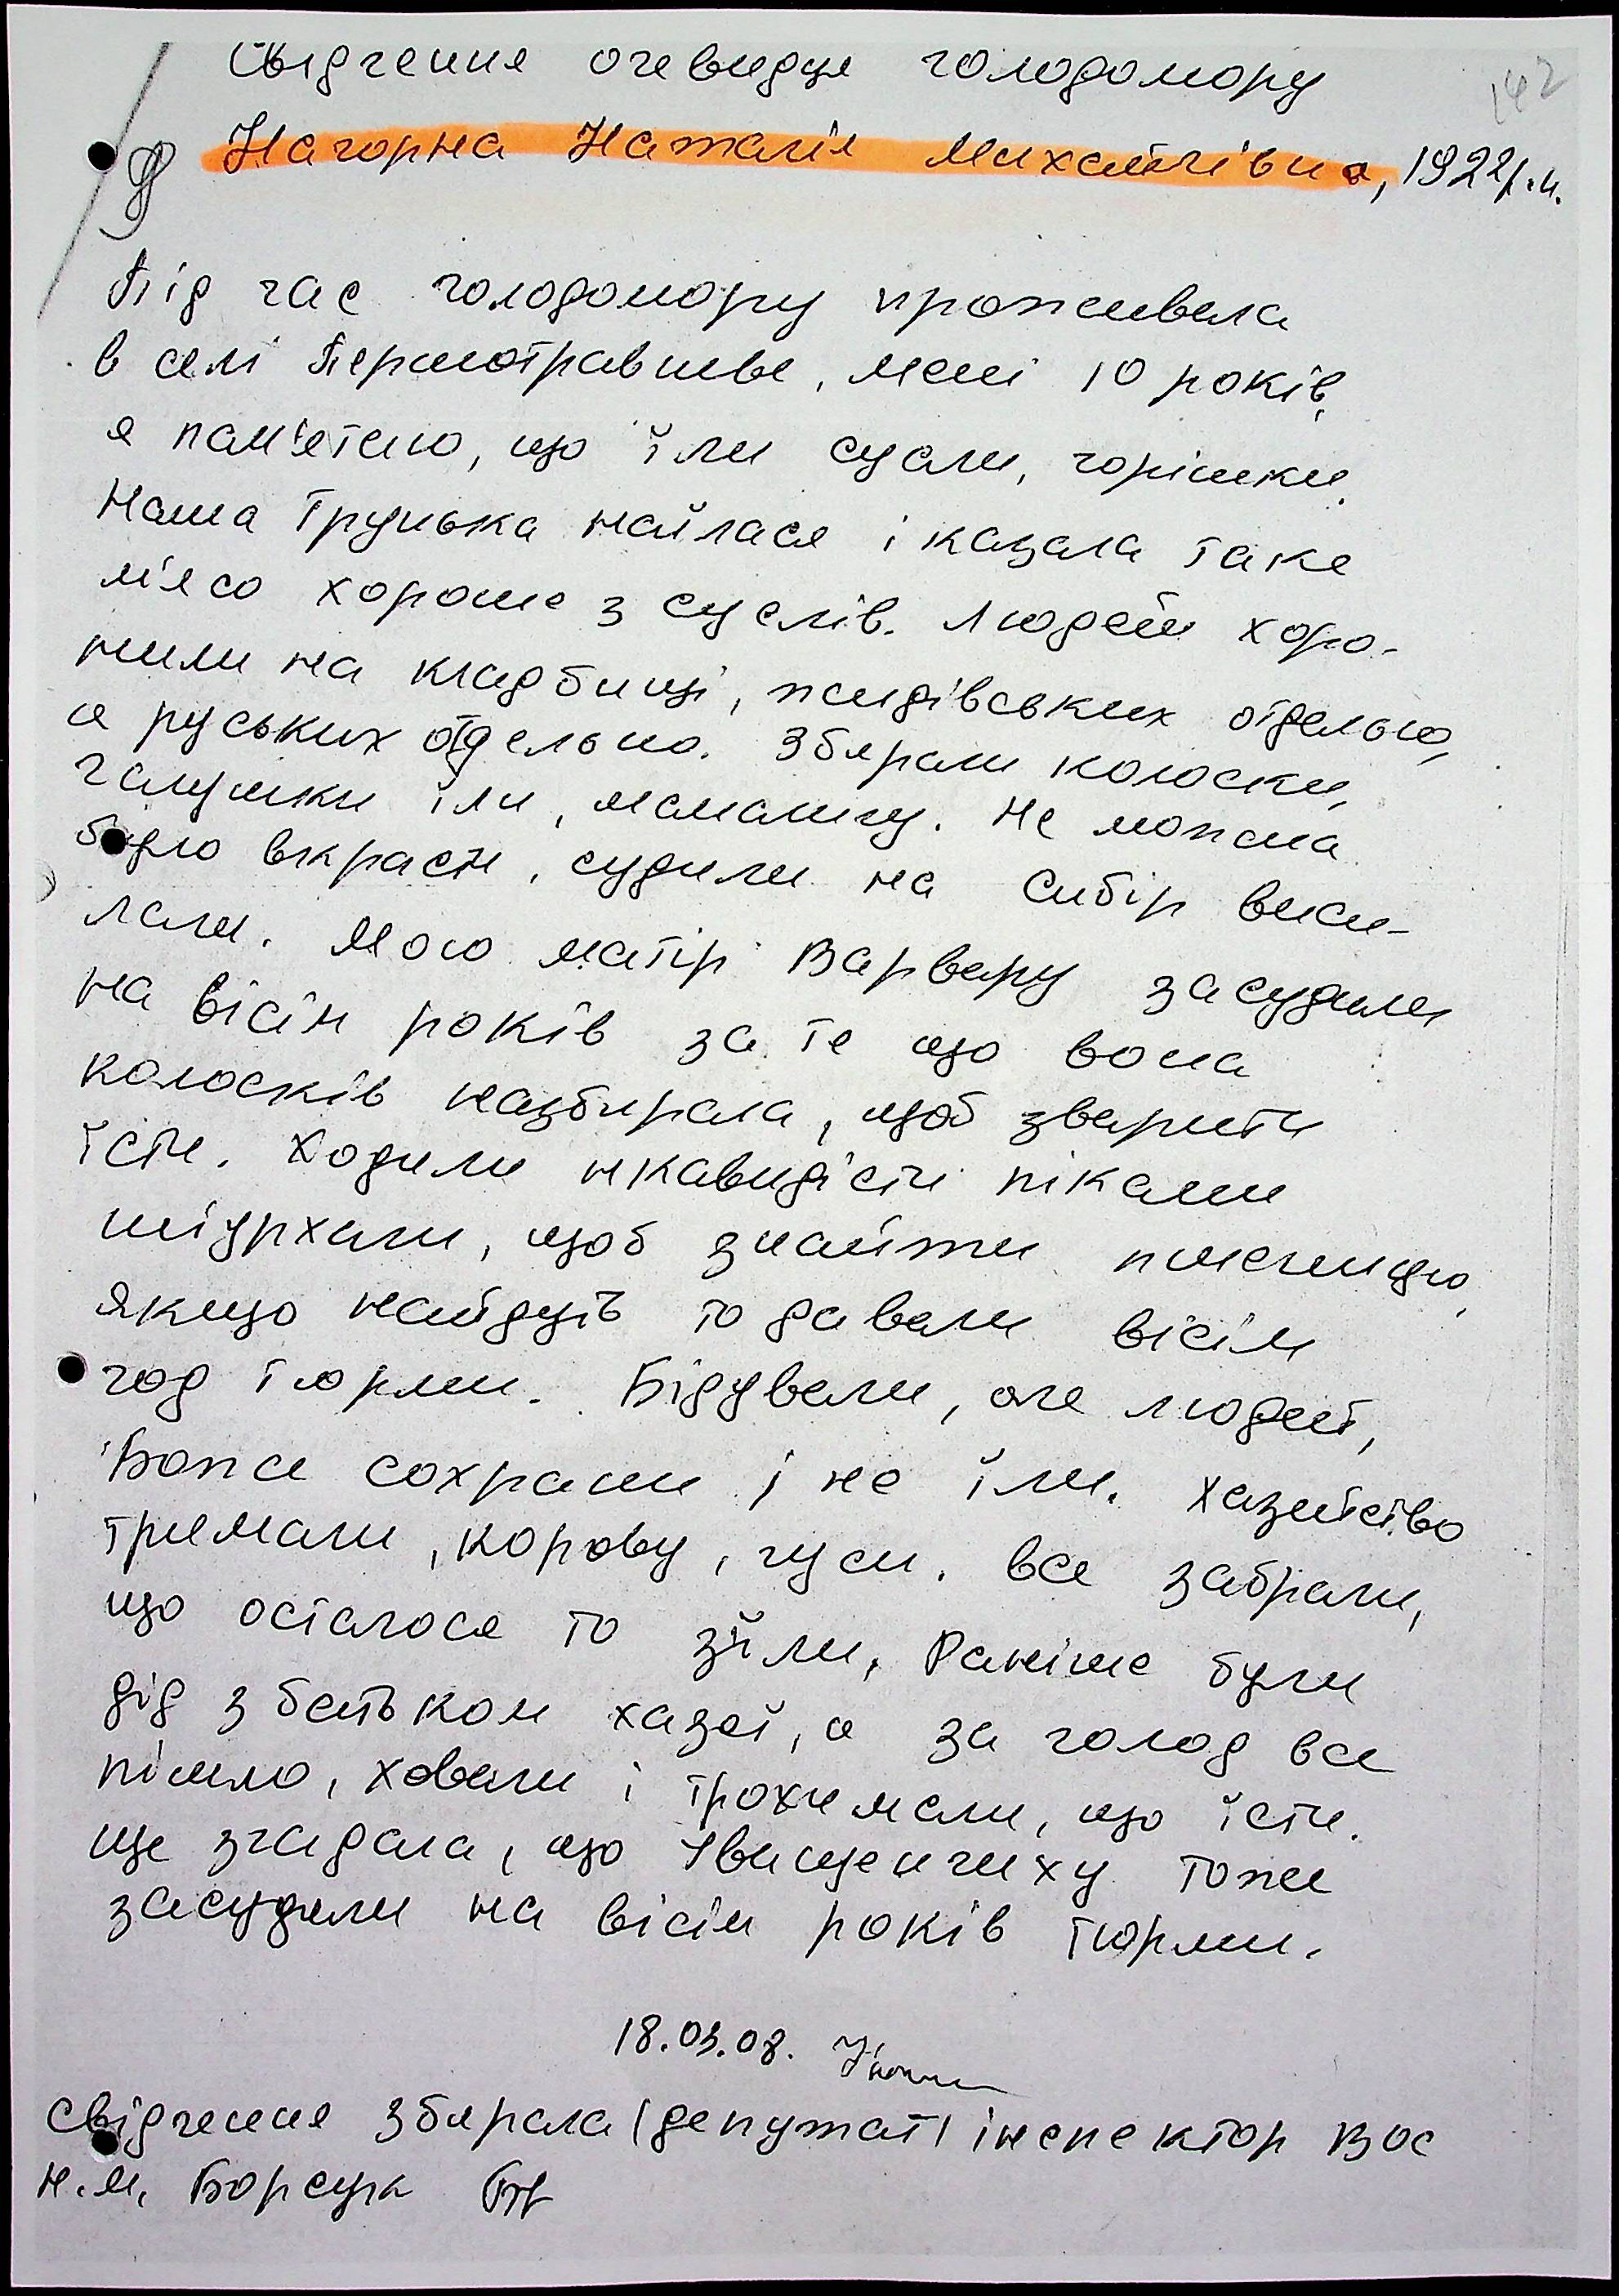 Свідчення очевидця голодомору
142
Нагорна Наталія Михайлівна, 1922 р.н.
Під час голодомору проживала
в селі Першотравневе, мені 10 років,
я пам'ятаю, що їли сусли, горішки.
Наша Грунька наїлася і казала таке
м'ясо хороше з суслів. Людей хоро-
нили на кладбищі, жидівських отдельно,
а руських отдельно. Збирали колоски,
галушки їли, мамалигу. Не можна
було вкрасти, судили на Сибір виси-
лали. Мою матір Варвару засудили
на вісім років за те що вона
колосків назбирала, щоб зварити
їсти. Ходили нкавидісти піками
штурхали, щоб знайти пшеницю,
якщо найдуть то давали вісім
год тюрми. Бідували, але людей,
Боже сохрани і не їли. Хазяйство
тримали, корову, гуси. все забрали,
що осталося то зїли, Раніше були
дід з батьком хазяї, а за голод все
пішло, ховали і трохи мали, що їсти.
ще згадала, що Іващенчиху тоже
засудили на вісім років тюрми.
18.03.08.
свідчення збирала (депутат) інспектор ВОС
Н.М. Борсук